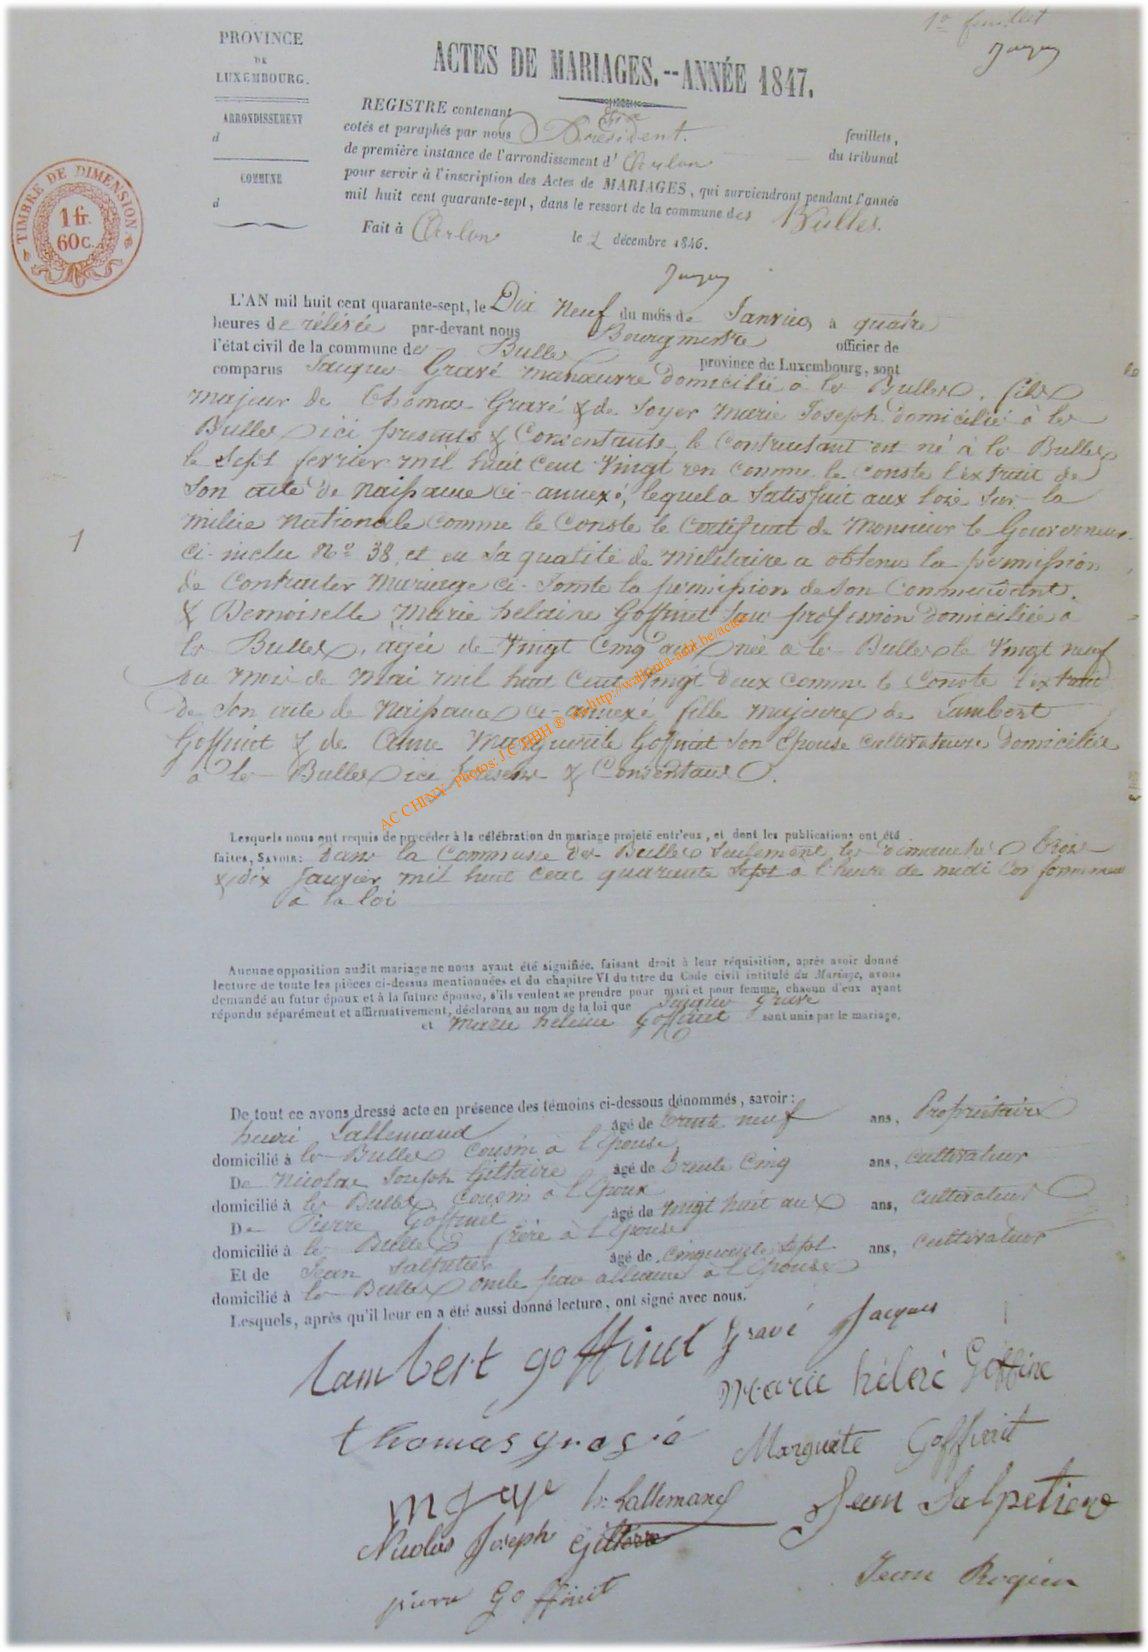 1er feuillet
PROVINCE
DE
LUXEMBOURG.
ACTES DE MARIAGES.--ANNÉE 1847.
ARRONDISSEMENT
d
COMMUNE
d
TIMBRE DE DIMENSION
1 fr.
60 c.
REGISTRE contenant feuillets,
cotés et paraphés par nous Président du tribunal
de première instance de l'arrondissement d' Arlon
pour servir à l'inscription des Actes de MARIAGES, qui surviendront pendant l'année
mil huit cent quarante-sept, dans le ressort de la commune des Bulles.
Fait à Arlon le 2 décembre 1846.
L'AN mil huit cent quarante-sept, le Dix Neuf du mois de Janvier à quatre
heures de rélévée par-devant nous Bourgmestre officier de
l'état civil de la commune de Bulles province de Luxembourg, sont
comparus Jacques Gravé manœuvre domicilié à les Bulles, fils
majeur de Thomas Gravé & de Soyer Marie Joseph domicilié à les
Bulles ici présents & Consentants, le Contractant est né à les Bulles
le Sept fevrier mil huit cent Vingt un comme le Conste l'extrait de
Son acte de Naissance ci-annexé, lequel a Satisfait aux loix Sur la
milice Nationale comme le Conste le Certificat de Monsieur le Gouverneur
ci-inclu No 38, et en Sa qualité de Militaire a obtenu la permission
de Contracter Mariage ci-Jointe la permission de Son Commandant.
& Demoiselle Marie helaine Goffinet San profession Domiciliée à
les Bulles, agée de Vingt Cinq ans née à les Bulles le Vingt neuf
du Mois de Mai mil huit Cent Vingt deux comme le Conste l'extrait
De Son acte de Naissance ci-annexé fille Majeure de Lambert
Goffinet & de Anne Marguerite Goffinet Son Epouse cultivateurs domiciliés
à les Bulles ici présens & Consentans.
1
AC CHINY - Photos: J C HBH ® via http://wallonia-asbl.be/actas/
Lesquels nous ont requis de procéder à la célébration du mariage projeté entr'eux, et dont les publications ont été
faites, SAVOIR: dans la Commune des Bulles Seulement les dimanches trois
& dix Janvier mil huit cent quarante Sept a l'heure de midi Conformement
à la loi
Aucune opposition audit mariage ne nous ayant été signifiée, faisant droit à leur réquisition, après avoir donné
lecture de toute les pièces ci-dessus mentionnées et du chapitre VI du titre du Code civil intitulé du Mariage, avons
demandé au futur époux et à la future épouse, s'ils veulent se prendre pour mari et pour femme, chacun d'eux ayant
répondu séparément et affirmativement, déclarons au nom de la loi que Jacques Gravé
et Marie helaine Goffinet sont unis par le mariage.
De tout ce avons dressé acte en présence des témoins ci-dessous dénommés, savoir:
henri Lallemand âgé de trente neuf ans, Propriétaire
domicilié à les Bulles Cousin à l'Epouse
De Nicolas Joseph Giltaire âgé de trente Cinq ans, cultivateur
domicilié à les Bulles Cousin à l'Epoux
De Pierre Goffinet âgé de vingt huit ans ans, cultivateur
domicilié à les Bulles frère à l'Epouse
Et de Jean Salpetier âgé de cinquante Sept ans, cultivateur
domicilié à les Bulles oncle par alliance à l'Epouse
Lesquels, après qu'il leur en a été aussi donné lecture, ont signé avec nous.
Lambert goffinet gravé Jacques
Marie héléné Goffine
thomas gravé Marguerite Goffinet
h: Lallemand Jean Salpetier
Nicolas Joseph Giltaire
pierre Goffinet Jean